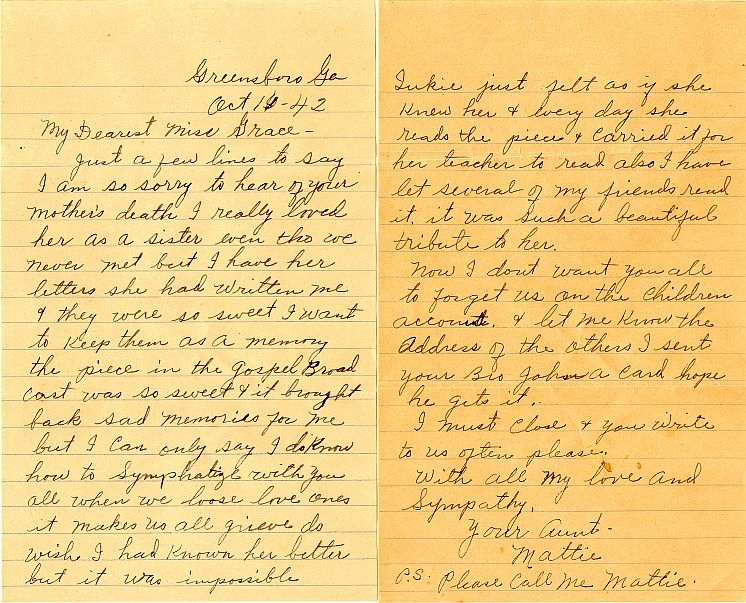 Greensboro Ga
Oct 16-42
My Dearest Miss Grace-
Just a few lines to say
I am so sorry to hear of your
mother's death I really loved
her as a sister even tho we
never met but I have her
letters she had written me
& they were so sweet I want
to keep them as a memory
the piece in the Gospel Broad
cast was so sweet & it brought
back sad memories for me
but I can only say I do know
how to Symphatize with you
all when we loose love ones
it makes us all grieve do
wish I had known her better
but it was impossible
Inkie just felt as if she
knew her & every day she
reads the piece & carried it for
her teacher to read also I have
let several of my friends read
it. it was such a beautiful
tribute to her.
Now I dont want you all
to forget us on the children
account. & let me know the
address of the others I sent
your Bro John a card hope
he gets it.
I must close & you write
to us often please.
With all my love and
Sympathy.
Your Aunt-
Mattie
P.S. Please Call Me Mattie.